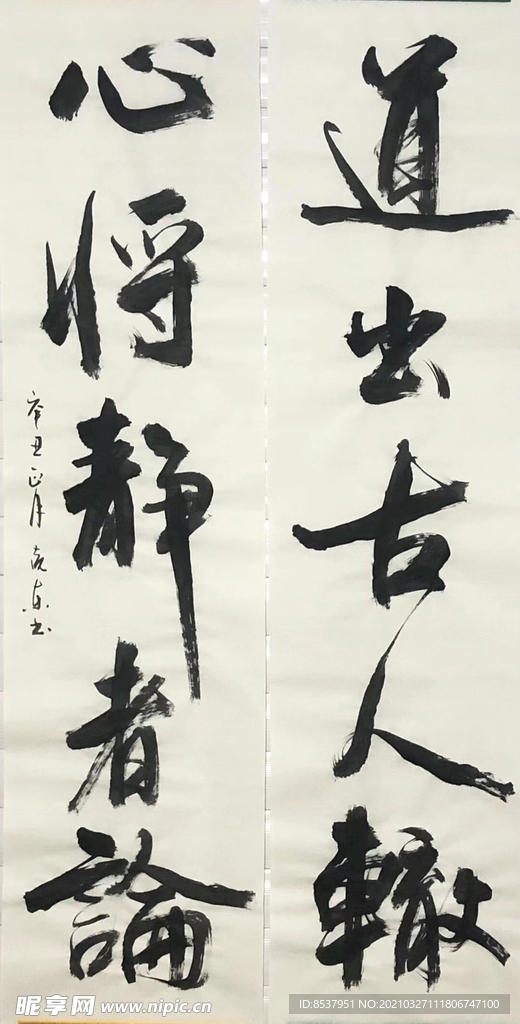 道出古人轍
心將靜者論
辛丑正月克東書
昵享网 www.nipic.cn
ID:8537951 NO:20210327111806747100